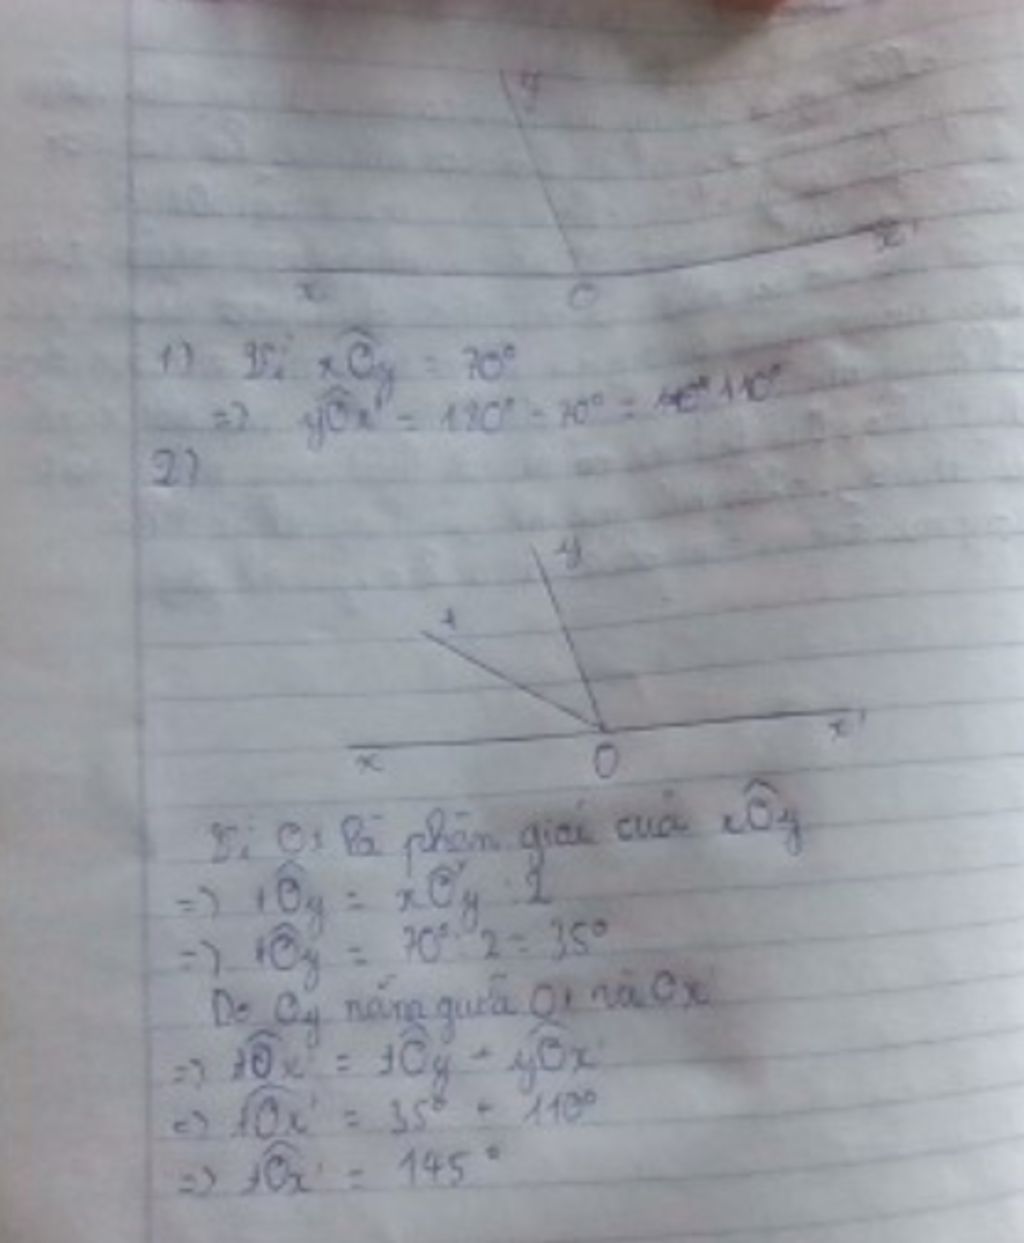 y
x O x'
1) Vì xÔy = 70°
=> yÔx' = 180° - 70° = 110°
2)
y
t
x O x'
Vì Ot là phân giác của xÔy
=> tÔy = xÔy : 2
=> tÔy = 70° : 2 = 35°
Do Oy nằm giữa Ot và Ox'
=> tÔx' = tÔy + yÔx'
=> tÔx' = 35° + 110°
=> tÔx' = 145°